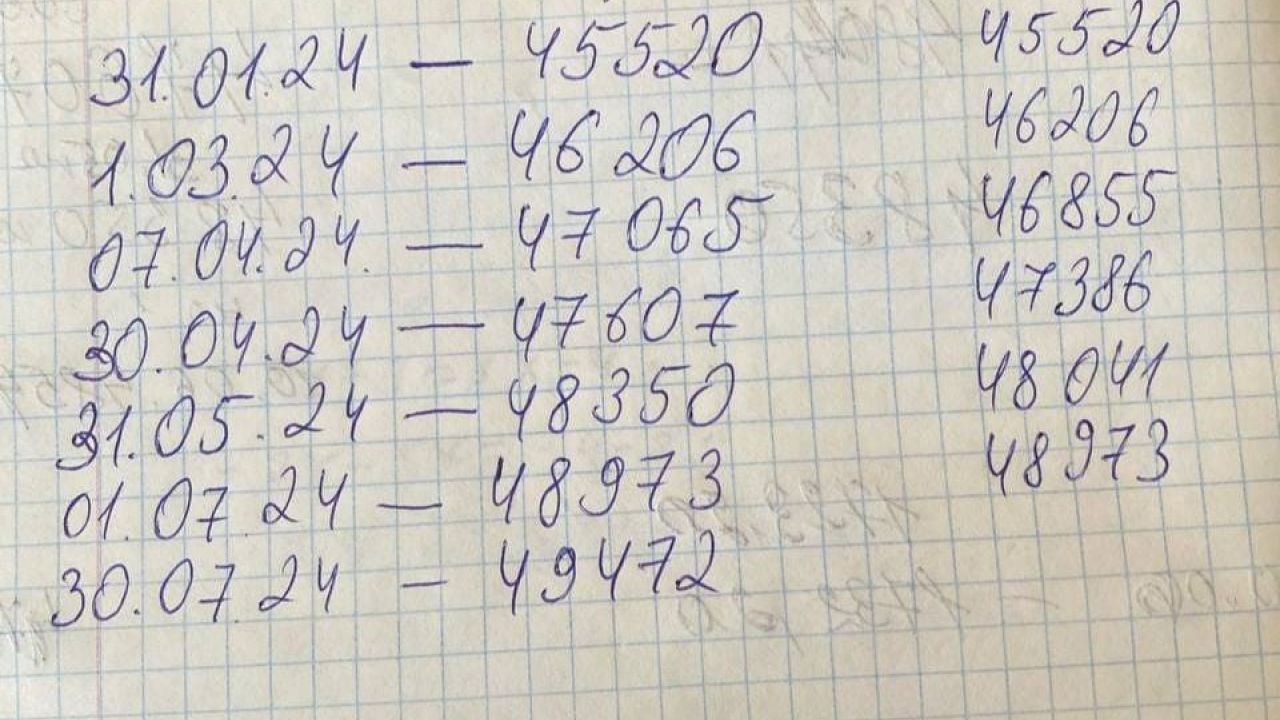 31.01.24 — 45520 45520
1.03.24 — 46206 46206
07.04.24. — 47065 46855
30.04.24 — 47607 47386
31.05.24 — 48350 48041
01.07.24 — 48973 48973
30.07.24 — 49472